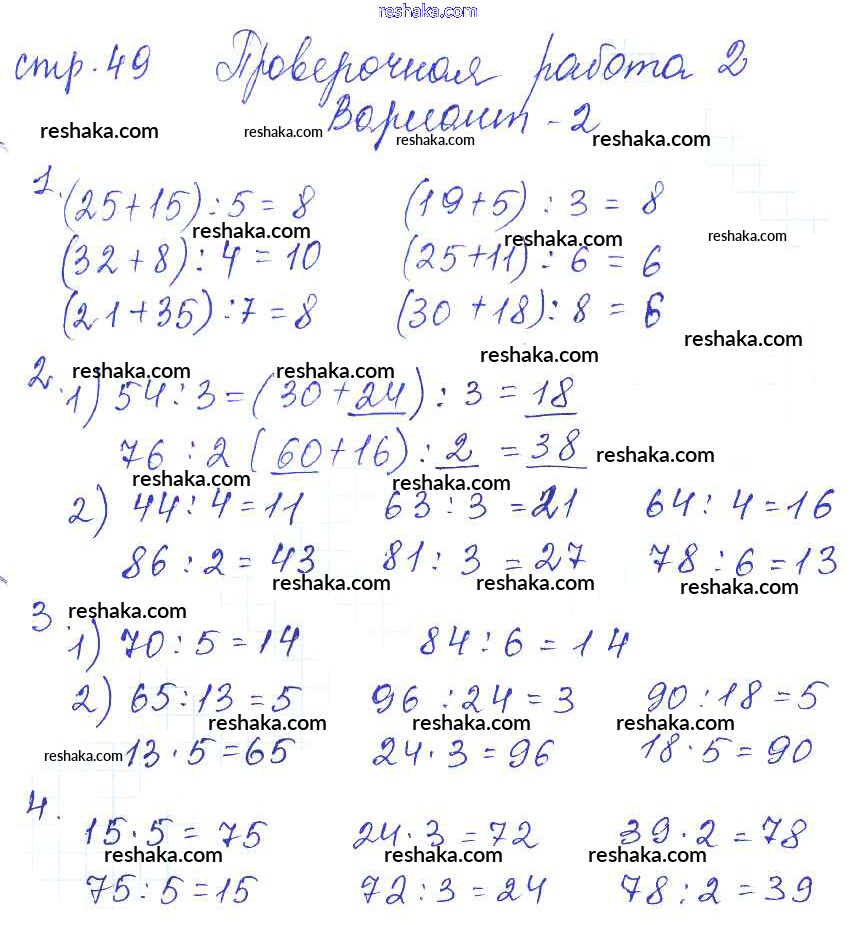 reshaka.com
стр. 49 Проверочная работа 2
reshaka.com reshaka.com Вариант - 2 reshaka.com
1. (25+15) : 5 = 8 (19+5) : 3 = 8
reshaka.com reshaka.com reshaka.com
(32+8) : 4 = 10 (25+11) : 6 = 6
(21+35) : 7 = 8 (30+18) : 8 = 6
reshaka.com reshaka.com
reshaka.com reshaka.com
2. 1) 54 : 3 = (30+24) : 3 = 18
76 : 2 (60+16) : 2 = 38 reshaka.com
reshaka.com reshaka.com
2) 44 : 4 = 11 63 : 3 = 21 64 : 4 = 16
86 : 2 = 43 81 : 3 = 27 78 : 6 = 13
reshaka.com reshaka.com reshaka.com
3. reshaka.com
1) 70 : 5 = 14 84 : 6 = 14
2) 65 : 13 = 5 96 : 24 = 3 90 : 18 = 5
reshaka.com reshaka.com reshaka.com
reshaka.com 13 · 5 = 65 24 · 3 = 96 18 · 5 = 90
4.
15 · 5 = 75 24 · 3 = 72 39 · 2 = 78
reshaka.com reshaka.com reshaka.com
75 : 5 = 15 72 : 3 = 24 78 : 2 = 39